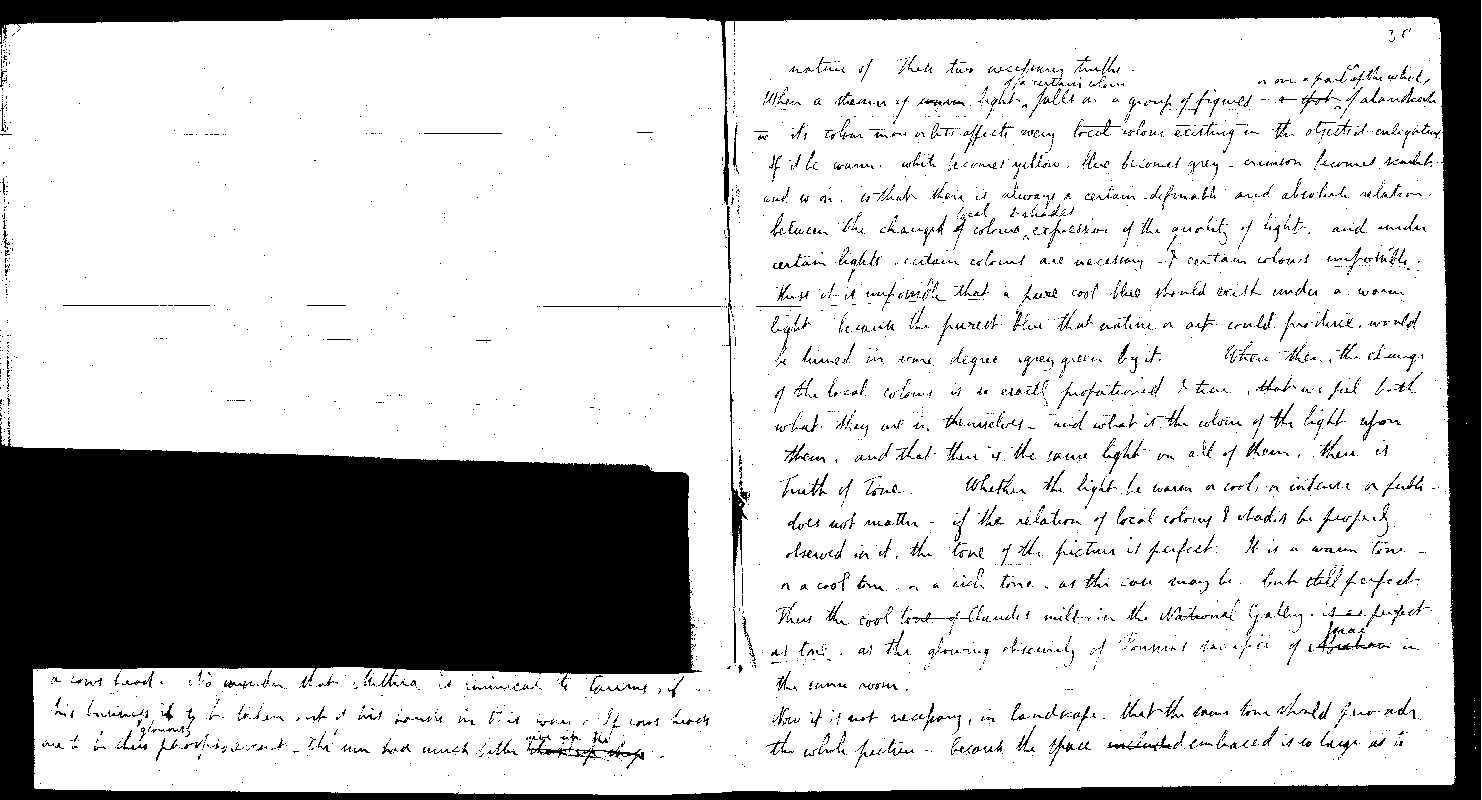 a cows head. No wonder that Mithra is inimical to Taurus, if
his business is to be taken out of his hands in this way. If cows heads
are to be thus gloriously phosphorescent - The sun had much better
38
nature of these two necessary truths.
When a stream of warm light of a certain colour falls on a group of figures - a spot or on a part of the which of a landscape
its colour more or less affects every local colour existing in the objects it enlightens
If it be warm. white becomes yellow. blue becomes grey - crimson becomes scarlet
and so on. so that there is always a certain definable and absolute relation
between the changes of local colours & shades expression of the quality of light. and under
certain lights - certain colours are necessary - & certain colours impossible.
Thus it is impossible that a pure cool blue should exist under a warm
light because the purest blue that nature or art could produce. would
be turned in some degree grey green by it. When then, the change
of the local colours is so exactly proportioned & true, that we feel both
what they are in themselves - and what is the colour of the light upon
them. and that there is the same light on all of them. there is
Truth of Tone. Whether the light be warm or cool, or intense or feeble -
does not matter - if the relation of local colours & shades be properly
observed in it. the tone of the picture is perfect. It is a warm tone -
or a cool tone - or a rich tone - as the case may be. but still perfect.
Thus the cool tone of Claude's mill - in the National Gallery. is as perfect
as tone. as the glowing obscurity of Poussins sacrifice of Abraham Isaac in
the same room.
Now it is not necessary, in landscape. that the same tone should pervade
the whole picture - because the space included embraced is so large as to